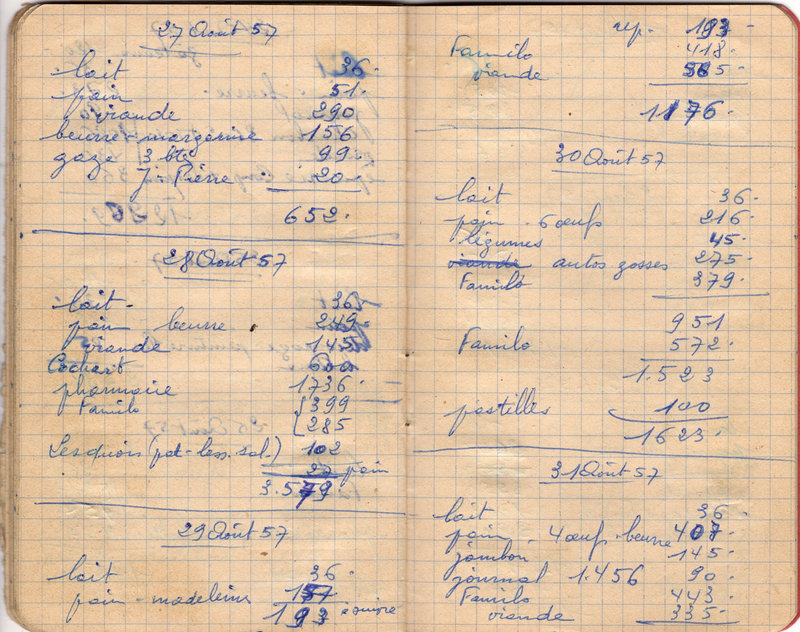 27 Août 57
lait 36.
pain 51.
viande 290
beurre-margarine 156
gaze 3 btes 99.
J. Pierre 20.
652.
28 Août 57
lait - 36
pain beurre 249.
viande 145
Cochart 600
pharmacie 1736.
Familo 399
285
Lesquois (pat-less.sal.) 102
27 pain
3.579
29 Août 57
lait 36.
pain - madeleines 157
193 à suivre
rep. 193
Familo 418.
viande 565.
1176.
30 Août 57
lait 36.
pain - 6 œufs 216
légumes 45.
viande autos gosses 275
Familo 379.
951
Familo 572.
1.523
pastilles 100
1623.
31 Août 57
lait 36.
pain - 4 œufs - beurre 407.
jambon 145.
journal 1.456 90.
Familo 443
viande 335.